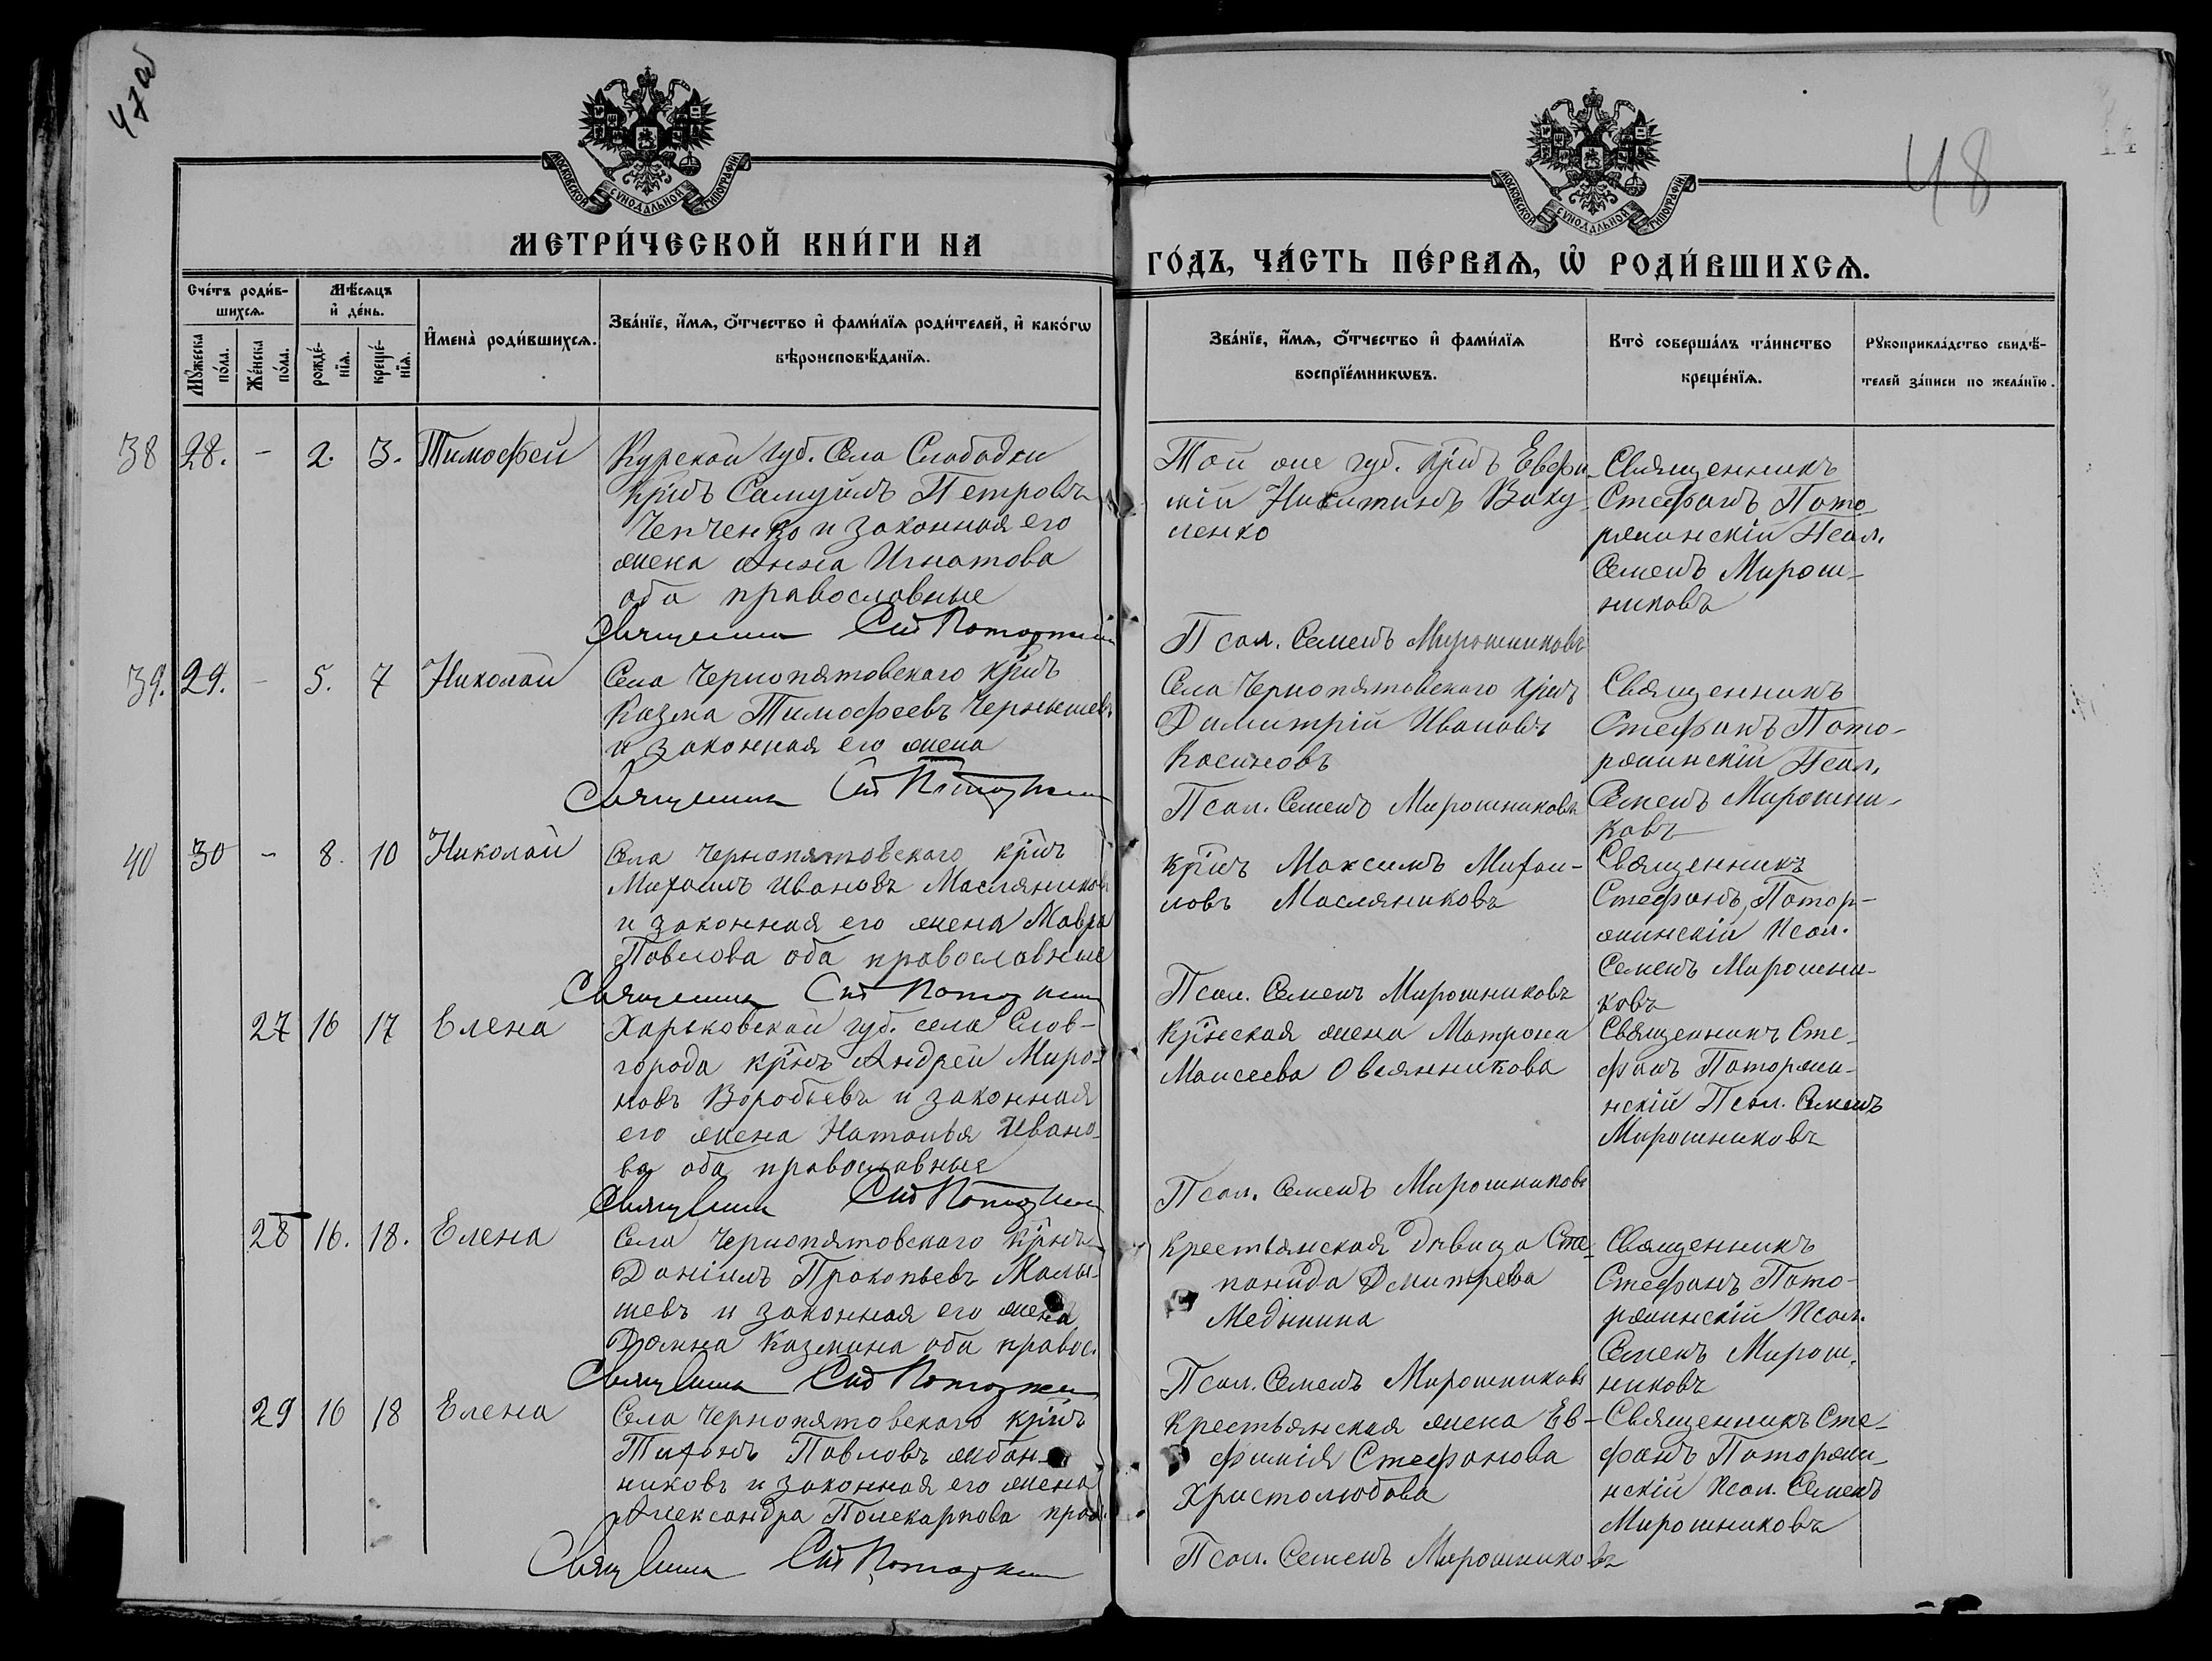 47об
МОСКОВСКОЙ СѴНОДАЛЬНОЙ ТИПОГРАФІИ
МЕТРИ́ЧЕСКОЙ КНИ́ГИ НА
Сче́тъ роди́в-
шихсѧ.
Мѣ́сѧцъ
и҆ де́нь.
И҆мена̀ роди́вшихсѧ.
Зва́нїе, и҆́мѧ, ѻ҆́тчество и҆ фами́лїѧ роди́телей, и҆ како́гѡ
вѣроисповѣ́данїѧ.
Мꙋ́жеска
по́ла.
Же́нска
по́ла.
рожде́-
нїѧ.
креще́-
нїѧ.
38 28. - 2. 3. Тимофей
Курской губ. Села Слободки
кр̃нъ Самуилъ Петровъ
Чепченко и законная его
жена Анна Игнатова
оба православные
Священник Ст
39. 29. - 5. 7 Николай
Села Чернопятовскаго кр̃нъ
Козма Тимофеевъ Чернышевъ
и законная его жена
Священник Ст
40 30 - 8. 10 Николай
Села Чернопятовскаго кр̃нъ
Михаилъ Ивановъ Масляниковъ
и законная его жена Мавра
Павлова оба православные
Священник Ст
27 16 17 Елена
Харьковской губ. села Слав-
города кр̃нъ Андрей Миро-
новъ Воробьевъ и законная
его жена Наталья Ивано-
ва оба православные
Священник Ст
28 16. 18. Елена
Села Чернопятовскаго кр̃нъ
Даніилъ Прокопьевъ Малы-
шевъ и законная его жена
Домна Казмина оба правос.
Священник Ст
29 16 18 Елена
Села Чернопятовскаго кр̃нъ
Тихонъ Павловъ
никовъ и законная его жена
Александра Полекарпова прав.
Священник Ст
48
МОСКОВСКОЙ СѴНОДАЛЬНОЙ ТИПОГРАФІИ
ГО́ДЪ, ЧА́СТЬ ПЕ́РВАѦ, Ѡ҆ РОДИ́ВШИХСѦ.
Зва́нїе, и҆́мѧ, ѻ҆́тчество и҆ фами́лїѧ
воспрїе́мникѡвъ.
Кто̀ соверша́лъ та́инство
креще́нїѧ.
Рꙋкоприкла́дство свидѣ́-
телей за́писи по жела́нїю.
Той же губ. кр̃нъ Евфи-
мій Никитинъ Ваку-
ленко
Псал. Семенъ Мирошниковъ
Священникъ
Стефанъ Пото-
ржинскій Псал.
Семенъ Мирош-
никовъ
Села Чернопятовскаго кр̃нъ
Димитрій Ивановъ
Косиновъ
Псал. Семенъ Мирошниковъ
Священникъ
Стефанъ Пото-
ржинскій Псал.
Семенъ Мирошни-
ковъ
кр̃нъ Максимъ Михаи-
ловъ Масляниковъ
Псал. Семенъ Мирошниковъ
Священникъ
Стефанъ Потор-
жинскій Псал.
Семенъ Мирошни-
ковъ
кр̃нская жена Матрона
Моисеева Овсянникова
Псал. Семенъ Мирошниковъ
Священникъ Сте-
фанъ Поторжи-
нскій Псал. Семенъ
Мирошниковъ
Крестьянская дѣвица Сте-
панида Дмитрева
Медынина
Псал. Семенъ Мирошниковъ
Священникъ
Стефанъ Пото-
ржинскій Псал.
Семенъ Мирош-
никовъ
Крестьянская жена Ев-
фимія Стефанова
Христолюбова
Псал. Семенъ Мирошниковъ
Священникъ Сте-
фанъ Поторжи-
нскій Псал. Семенъ
Мирошниковъ